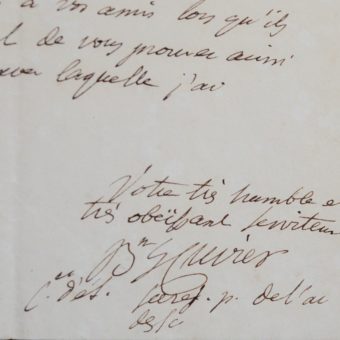 à vos amis lors qu'ils
de vous prouver aussi
laquelle j'ai
Votre très humble e
très obéissant serviteur
Bⁿ G Cuvier
Cᵉʳ d'ét. Secrét. p. de l'ac
des sc